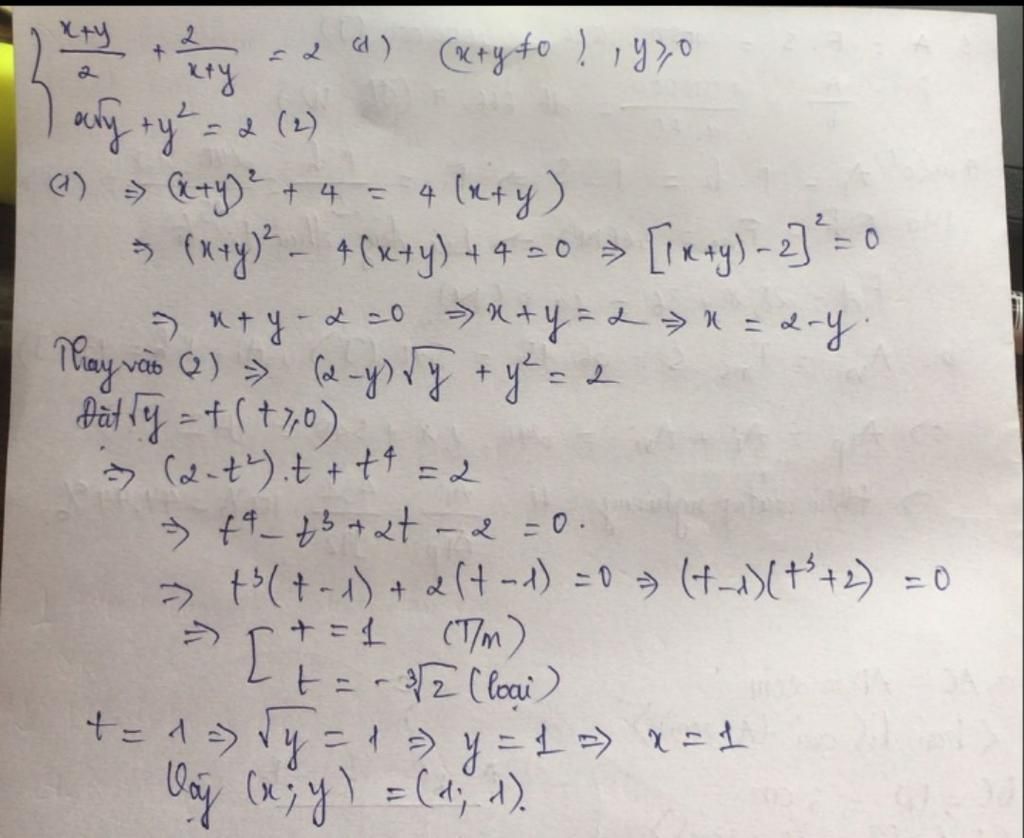 { (x+y)/2 + 2/(x+y) = 2 (1) (x+y≠0), y⩾0
x√y + y² = 2 (2)
(1) ⇒ (x+y)² + 4 = 4(x+y)
⇒ (x+y)² - 4(x+y) + 4 = 0 ⇒ [(x+y)-2]² = 0
⇒ x+y-2=0 ⇒ x+y=2 ⇒ x = 2-y.
Thay vào (2) ⇒ (2-y)√y + y² = 2
Đặt √y = t (t⩾0)
⇒ (2-t²).t + t⁴ = 2
⇒ t⁴ - t³ + 2t - 2 = 0.
⇒ t³(t-1) + 2(t-1) = 0 ⇒ (t-1)(t³+2) = 0
⇒ [ t = 1 (T/m)
t = -∛2 (loại)
t = 1 ⇒ √y = 1 ⇒ y = 1 ⇒ x = 1
Vậy (x; y) = (1; 1).